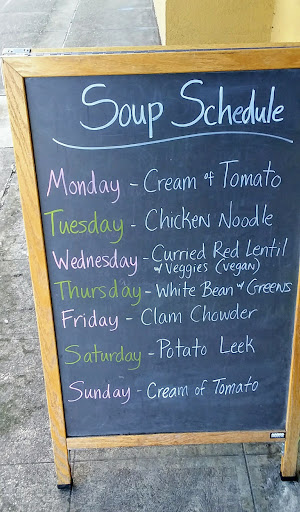 Soup Schedule
Monday - Cream of Tomato
Tuesday - Chicken Noodle
Wednesday - Curried Red Lentil
+ Veggies (vegan)
Thursday - White Bean + Greens
Friday - Clam Chowder
Saturday - Potato Leek
Sunday - Cream of Tomato